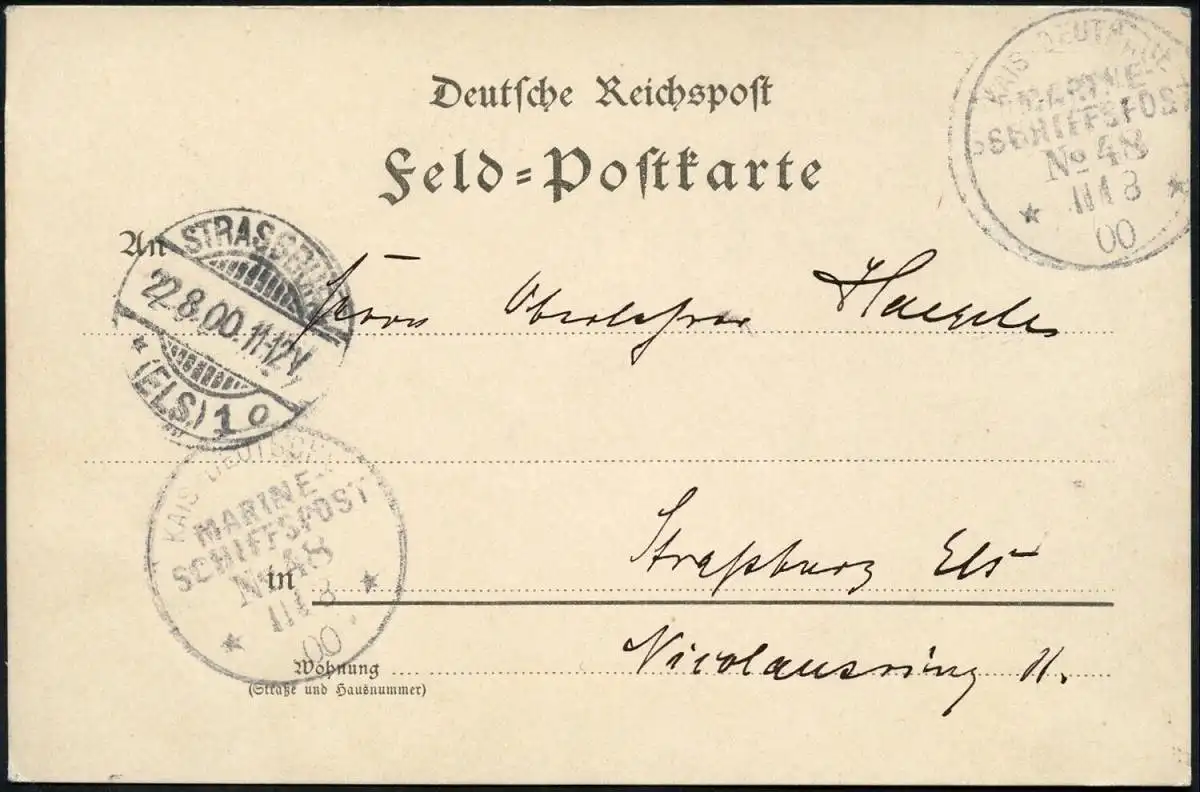 Deutsche Reichspost
Feld-Postkarte
KAIS. DEUTSCHE
MARINE-
SCHIFFSPOST
No 48
11/8
00
An
STRASSBURG
22.8.00.11-12V.
* (ELS.) 1 o
Herrn Oberlehrer
KAIS. DEUTSCHE
MARINE-
SCHIFFSPOST
No 48
11/8
00
in Straßburg Els
Wohnung Nicolausring 11.
(Straße und Hausnummer)